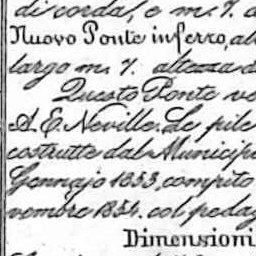 di corda, e m. 7. a
Nuovo Ponte in ferro, al
largo m. 7. altezza d
Questo Ponte ve
A. E. Neville. Le pile
costrutte dal Municipi
Gennajo 1853, compito
vembre 1854. col pedag
Dimensioni